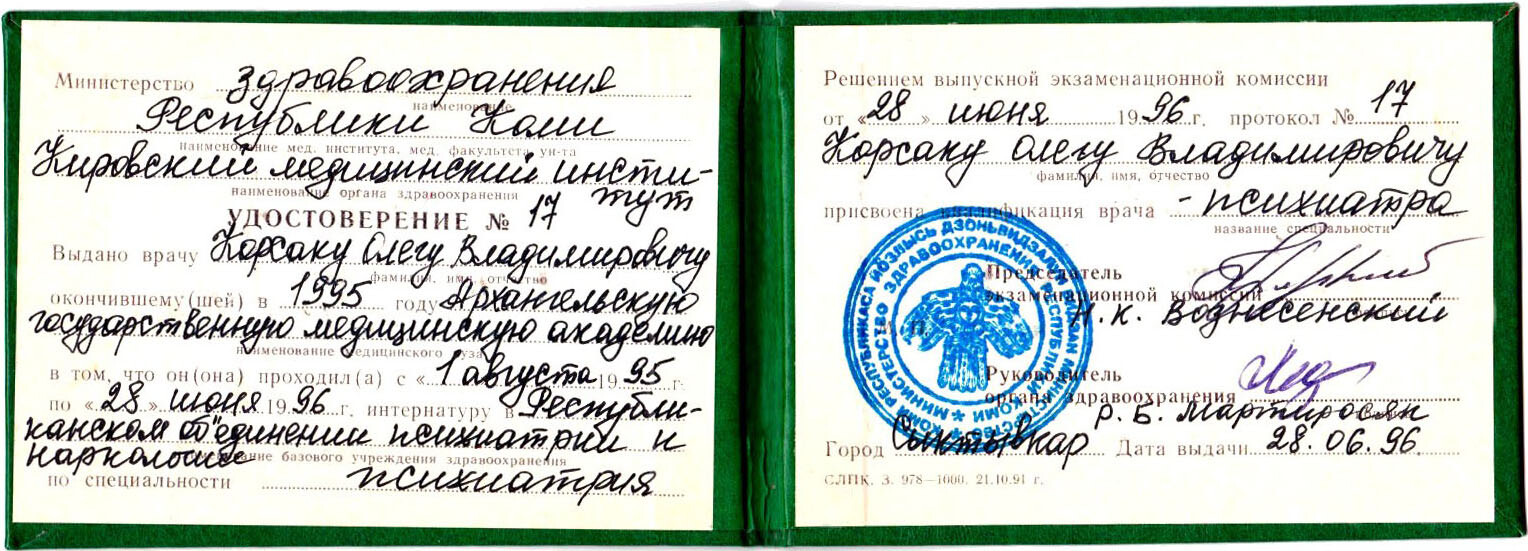 Министерство здравоохранения
наименование
Республики Коми
наименование мед. института, мед. факультета ун-та
Кировский медицинский инсти-
тут
наименование органа здравоохранения
УДОСТОВЕРЕНИЕ № 17
Выдано врачу Корсаку Олегу Владимировичу
фамилия, имя, отчество
окончившему(шей) в 1995 году Архангельскую
государственную медицинскую академию
наименование медицинского вуза
в том, что он(она) проходил(а) с «1 августа 1995 г.
по «28» июня 1996 г. интернатуру в Республи-
канском объединении психиатрии и
наркологии
наименование базового учреждения здравоохранения
по специальности психиатрия
Решением выпускной экзаменационной комиссии
от «28» июня 1996 г. протокол № 17
Корсаку Олегу Владимировичу
фамилия, имя, отчество
присвоена квалификация врача - психиатра
название специальности
Председатель
экзаменационной комиссии
Н.К. Вознесенский
М. П.
Руководитель
органа здравоохранения
Р. Б. Мартиросян
Город Сыктывкар Дата выдачи 28.06.96.
СЛПК. З. 978—1000. 21.10.91 г.
КОМИ РЕСПУБЛИКАСА ЙӦЗЛЫСЬ ДЗОНЬВИДЗАЛУН ВИДЗАН МИНИСТЕРСТВО
МИНИСТЕРСТВО ЗДРАВООХРАНЕНИЯ РЕСПУБЛИКИ КОМИ